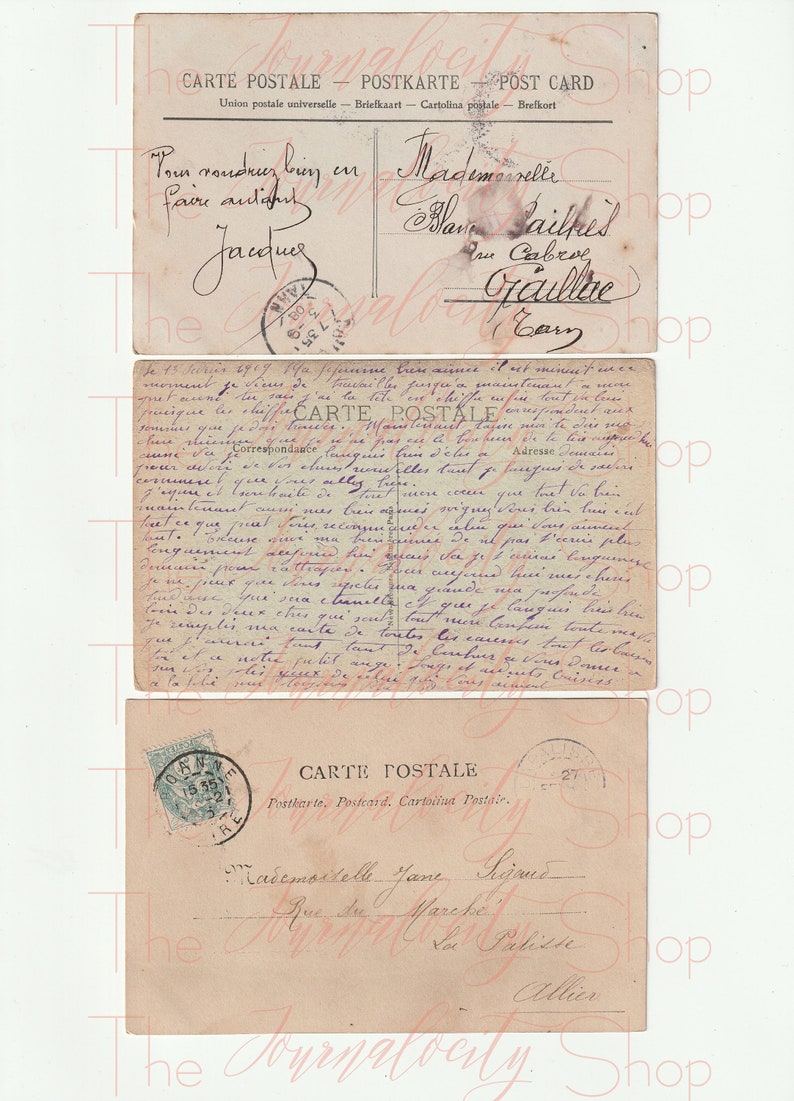 The Journalocity Shop
CARTE POSTALE — POSTKARTE — POST CARD
Union postale universelle — Briefkaart — Cartolina postale — Brefkort
Vous voudriez bien en
faire autant
Jacques
Mademoiselle
rue Cabrol
Gaillac
(Tarn)
TARN
7 35
3
08
Le 13 Février 1919 Ma Jeanne bien aimée il est minuit en ce
moment je viens de travailler jusqu'a maintenant a mon
pret aussi tu sais j'ai la tête en chiffre enfin tout va bien
puisque les chiffres correspondent aux
CARTE POSTALE
sommes que je dois trouver. Maintenant laisse moi te dire ma
chere mienne que je n'ai pas eu le bonheur de te lire
Correspondance
Adresse
aussi va je languis bien d'etre a demain
pour avoir de vos cheres nouvelles tant je languis de savoir
comment que vous allez bien.
J'espere et souhaite de tout mon cœur que tout va bien
maintenant aussi mes bien aimés soignez vous bien bien c'est
tout ce que peut vous recommander celui qui vous aiment
tant. Excuse moi ma bien aimée de ne pas t'ecrire plus
longuement aujourd'hui mais va je t'ecrirai longuement
demain pour rattraper.
je ne peux que vous repeter ma grande ma profonde
tendresse qui sera eternelle et que je languis bien bien
loin des deux etres qui sont tout mon bonheur toute ma vie
je remplis ma carte de toutes les caresses tout les baisers
que j'aurais tant tant de bonheur a vous donner a
toi et a notre petit ange. Longs et
sur vos jolis yeux de celui qui vous aiment
a la folie pour toujours
ROANNE
15 35
LOIRE
POSTES
CARTE POSTALE
Postkarte. Postcard. Cartolina Postale.
27
Mademoiselle Jane Sigaud
Rue du Marché
La Palisse
Allier